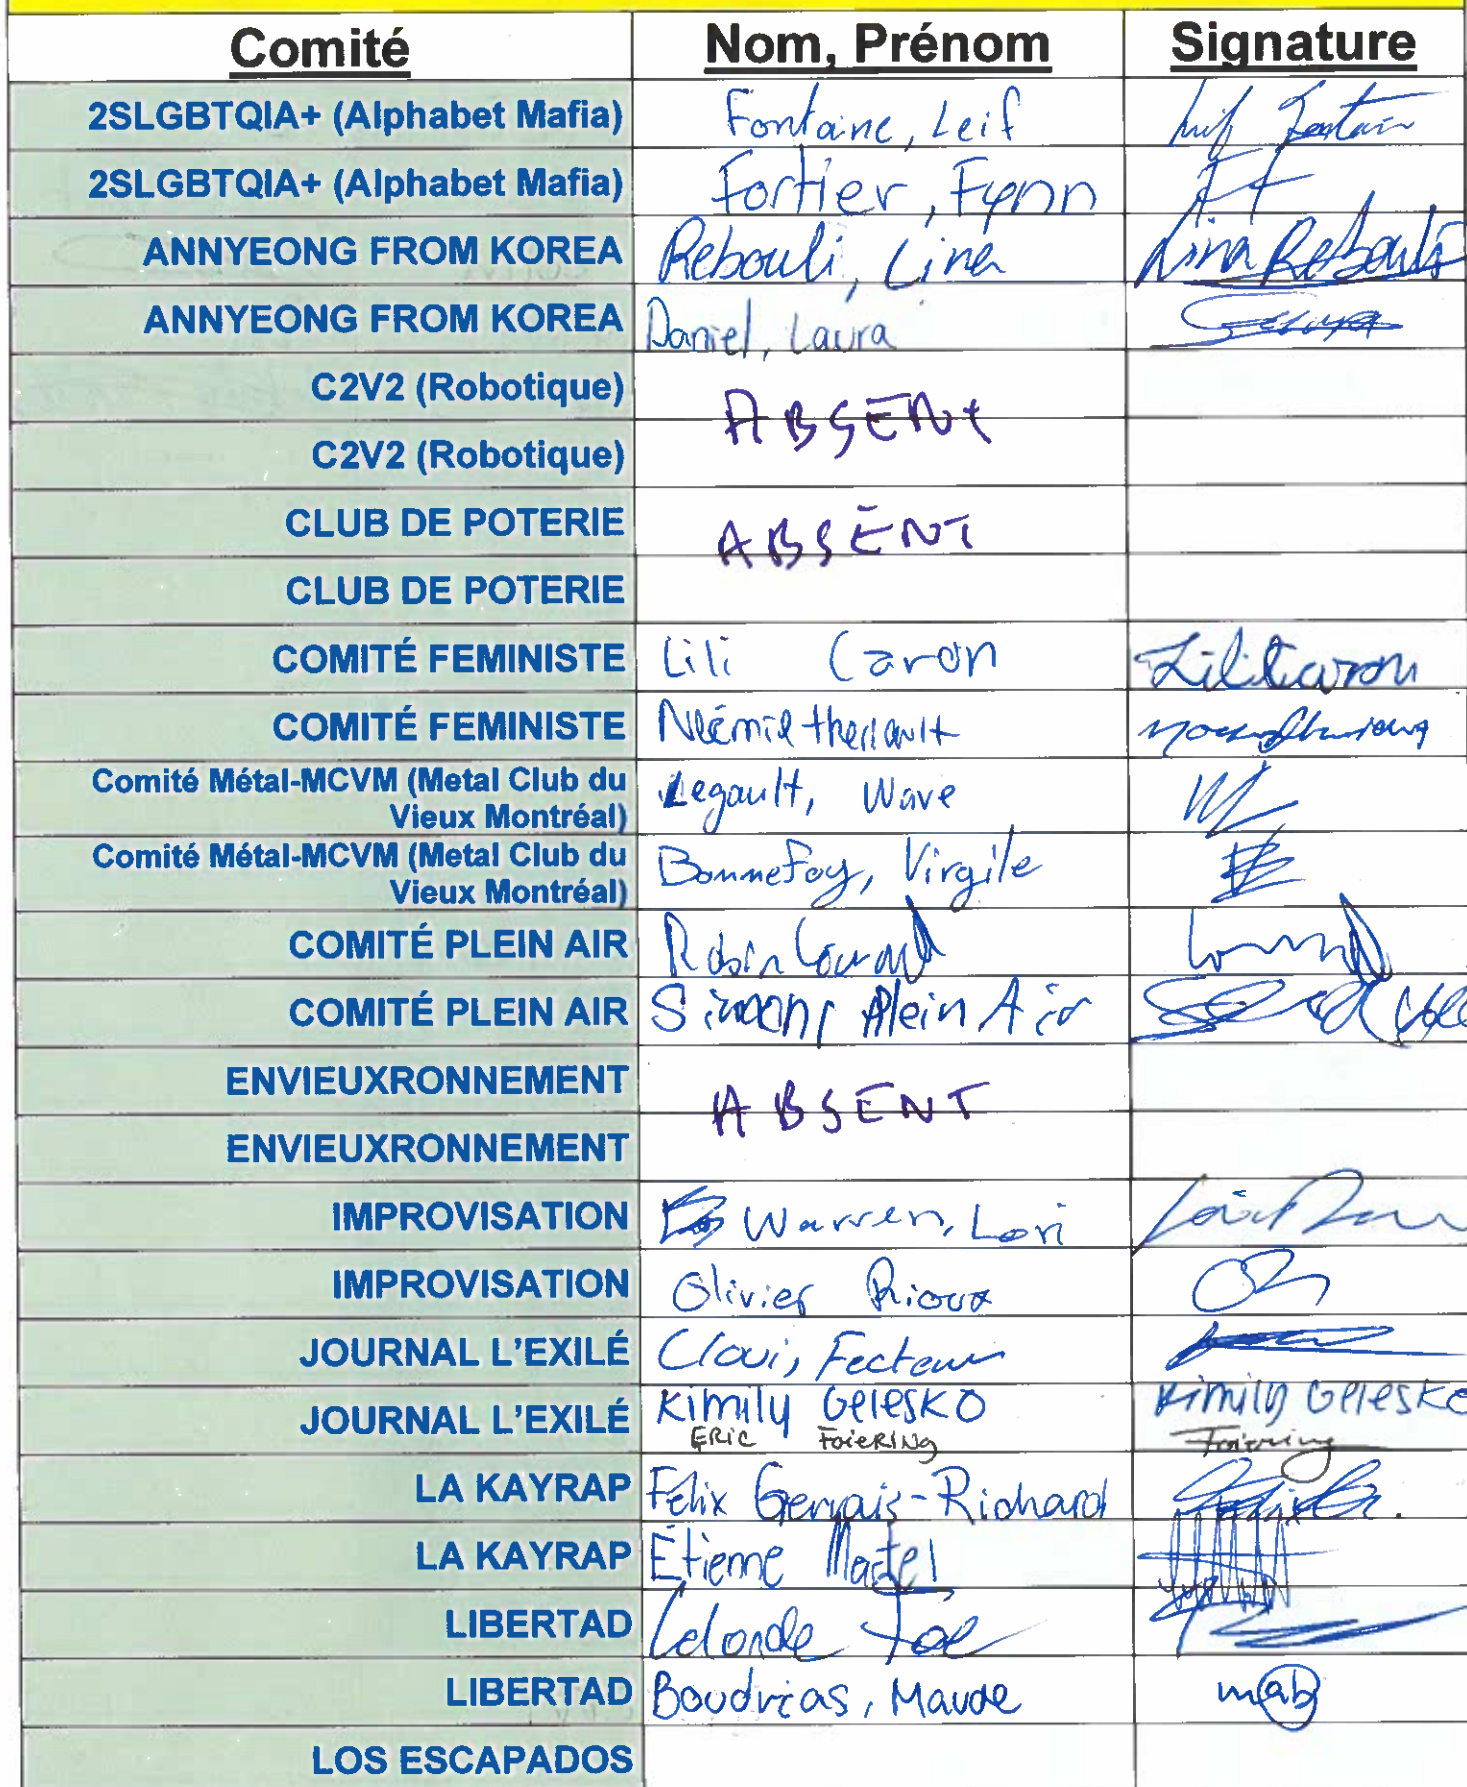 Comité Nom, Prénom Signature
2SLGBTQIA+ (Alphabet Mafia) Fontaine, Leif
2SLGBTQIA+ (Alphabet Mafia) Fortier, Fynn FF
ANNYEONG FROM KOREA Rebouli, Lina Lina Rebouli
ANNYEONG FROM KOREA Daniel, Laura
C2V2 (Robotique) ABSENt
C2V2 (Robotique)
CLUB DE POTERIE ABSENT
CLUB DE POTERIE
COMITÉ FEMINISTE Lili Caron Lili Caron
COMITÉ FEMINISTE Noémie theriault
Comité Métal-MCVM (Metal Club du
Vieux Montréal) Legault, Wave
Comité Métal-MCVM (Metal Club du
Vieux Montréal) Bonnefoy, Virgile
COMITÉ PLEIN AIR Robin
COMITÉ PLEIN AIR Simon, Plein Air
ENVIEUXRONNEMENT ABSENT
ENVIEUXRONNEMENT
IMPROVISATION Warren, Lori
IMPROVISATION Olivier Rioux
JOURNAL L'EXILÉ Clovi, Fecteau
JOURNAL L'EXILÉ Kimily Gelesko Kimily Gelesko
ERiC FoieRiNg Foiering
LA KAYRAP Félix Gervais-Richard
LA KAYRAP Étienne Martel
LIBERTAD Lalonde Zoé
LIBERTAD Boudrias, Maude mab
LOS ESCAPADOS